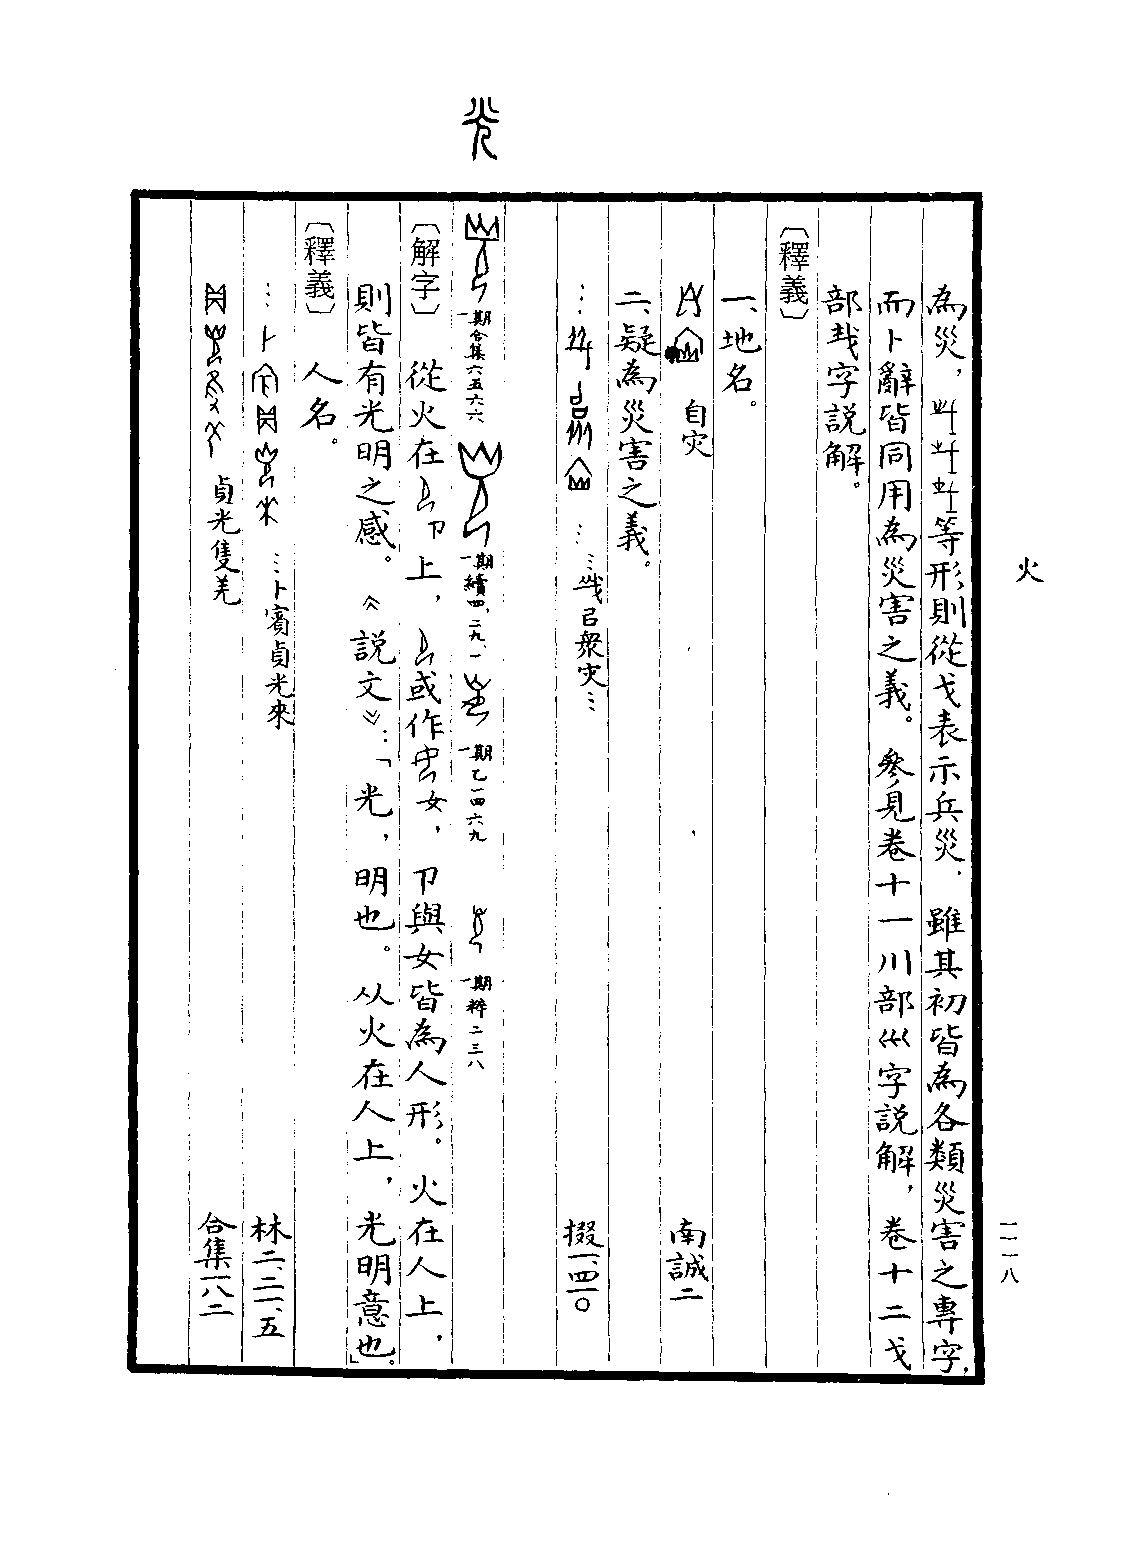 火
一一一八
為災，等形則從戈表示兵災，雖其初皆為各類災害之專字，
而卜辭皆同用為災害之義。參見卷十一川部巛字說解，卷十二戈
部𢦏字說解。
〔釋義〕
一、地名。
自灾 南誠二
二、疑為災害之義。
…𢦏㠯衆灾… 掇一、四一〇
光
一期合集六五六六 一期續四、二九、一 一期乙一四六九 一期粹二三八
〔解字〕 從火在卩上，或作女，卩與女皆為人形。火在人上，
則皆有光明之感。《說文》：「光，明也。从火在人上，光明意也。」
〔釋義〕
人名。
…卜㝓貞光來 林二、二一、五
貞光隻羌 合集一八二